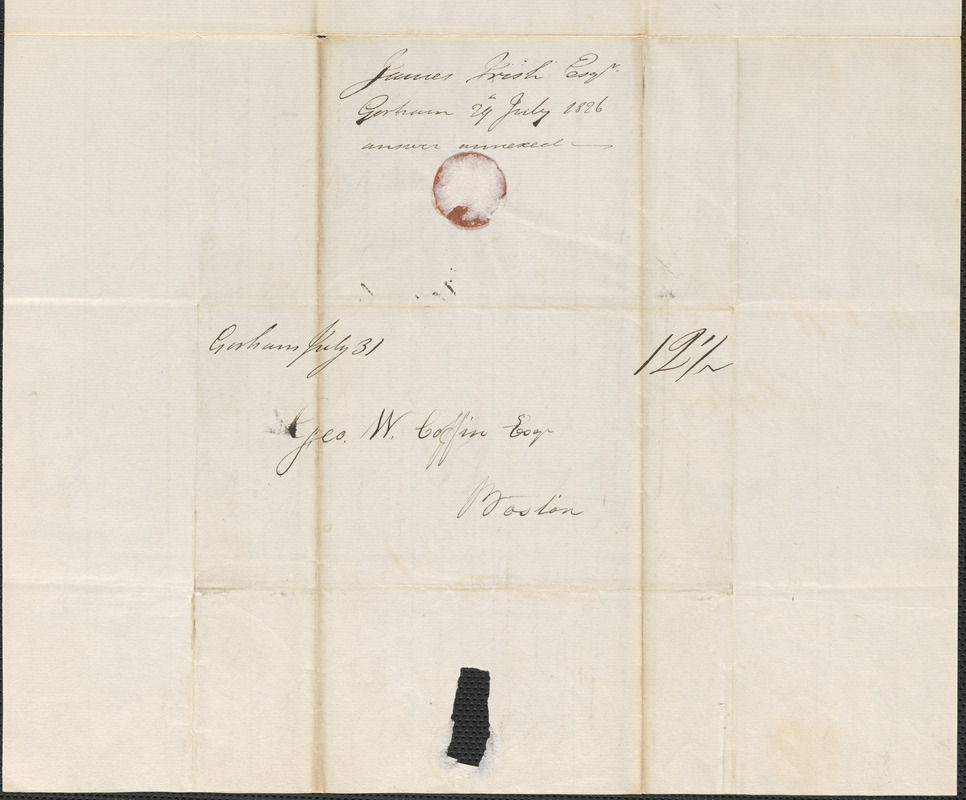 James Irish Esqr.
Gorham 29 July 1826
answer annexed
Gorham July 31
12 1/2
Geo. W. Coffin Esqr
Boston